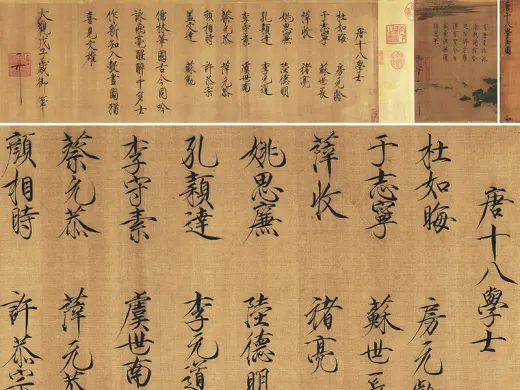 唐十八學士
杜如晦 房元齡
于志寧 蘇世長
薛收 褚亮
姚思廉 陸德明
孔穎達 李元道
李守素 虞世南
蔡元恭 薛元恭
顏相時 許恭宗
蓋文達 蘇
儒林華國古今同吟
詠飛毫醒醉中多士
作新知入彀畫圖猶
喜見文雄
大觀戊子歲御筆
唐十八學士
杜如晦 房元
于志寧 蘇世
薛收 褚亮
姚思廉 陸德明
孔穎達 李元道
李守素 虞世南
蔡元恭 薛元恭
顏相時 許恭宗